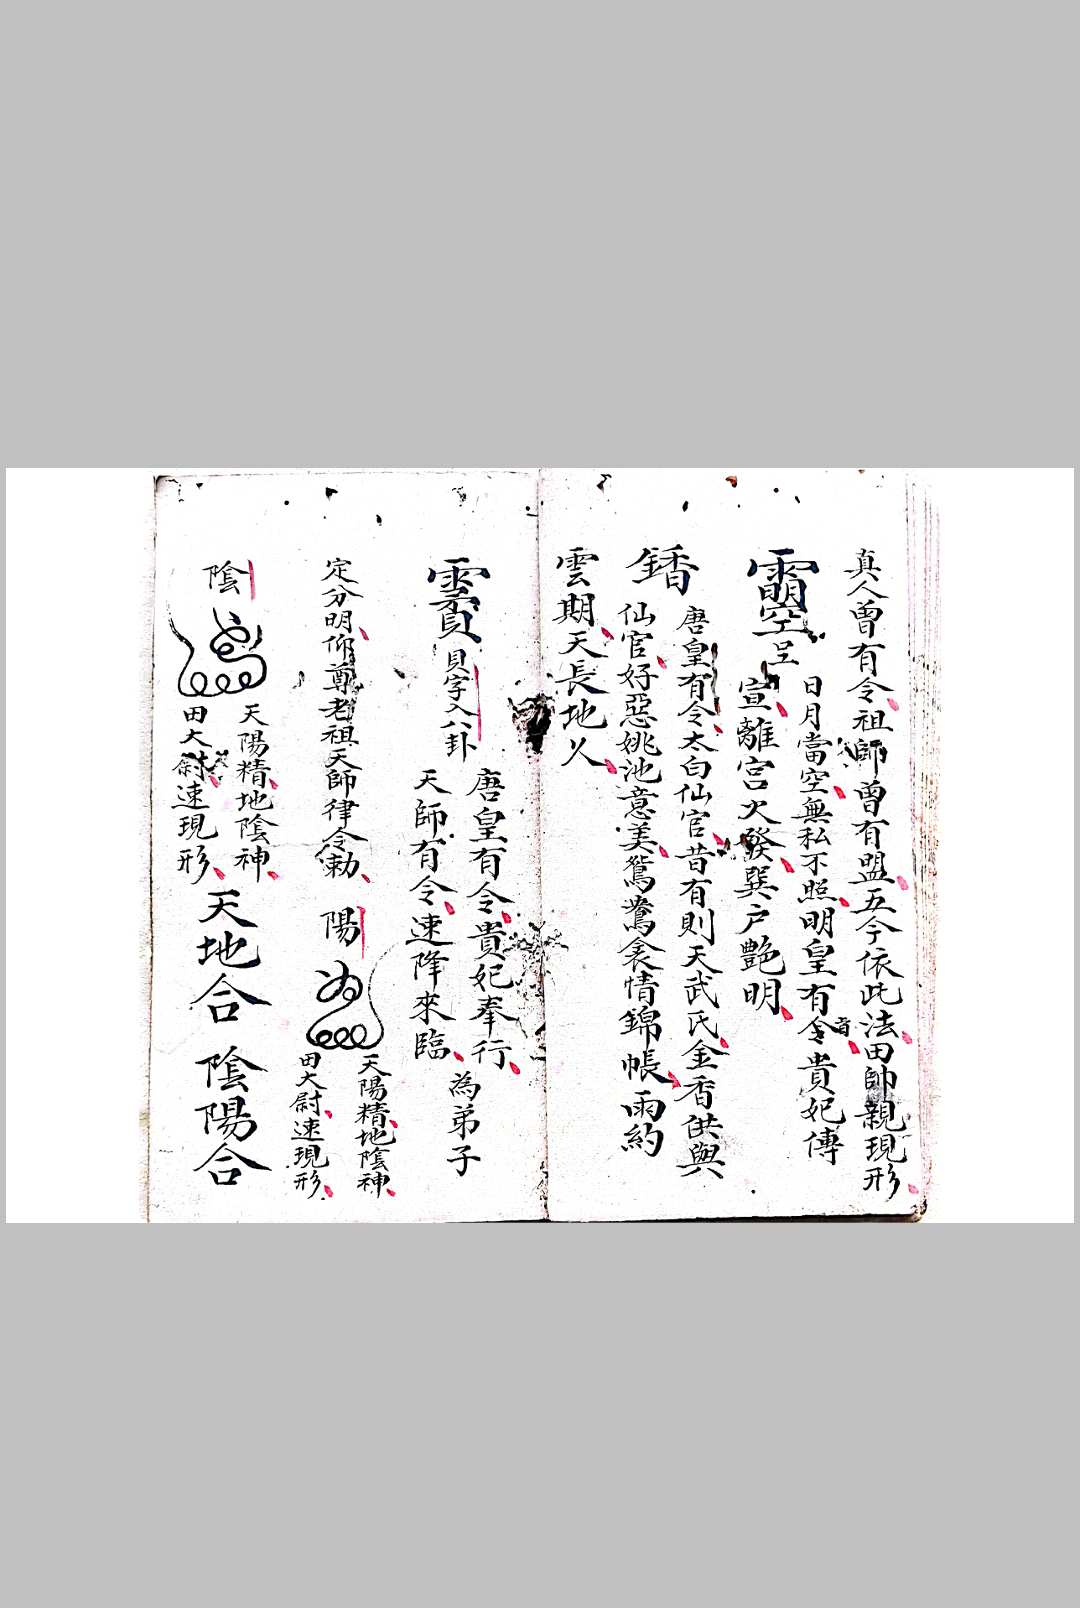 真人曾有令祖師曾有盟五今依此法田帥親現形
空呈
日月當空無私不照明皇有令旨貴妃傳
宣離宮火發巽户艷明
鍤
唐皇有令太白仙官昔有則天武氏金香供與
仙官好惡姚池意美鴛鴦衾情錦帳雨約
雲期天長地久
貝字入八卦
唐皇有令貴妃奉行
天師有令速降來臨
為弟子
定分明仰尊老祖天師律令勅
陽
天陽精地陰神
田大尉速現形
陰
天陽精地陰神
田大尉速現形
天地合 陰陽合